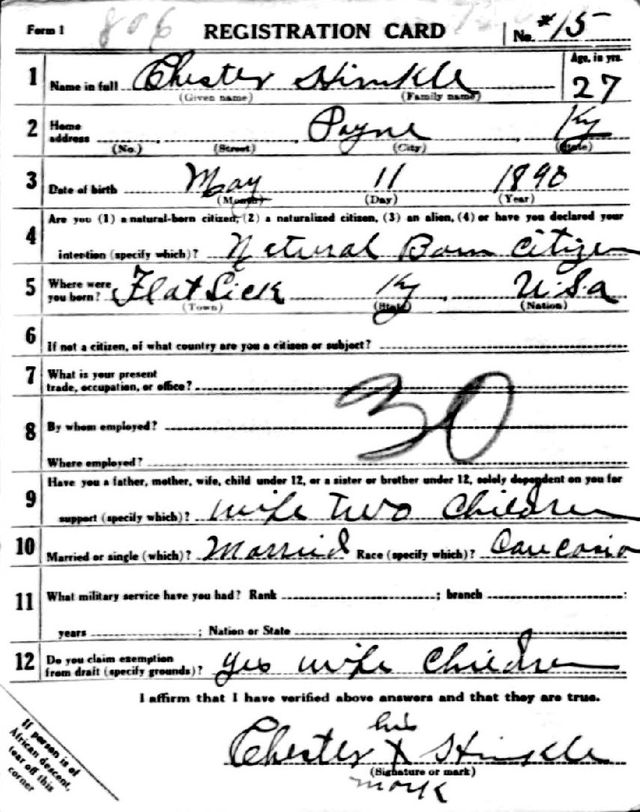 Form 1 806 REGISTRATION CARD No. #15
1 Name in full Chester Hinkle Age, in yrs.
(Given name) (Family name) 27
2 Home address Payne Ky
(No.) (Street) (City) (State)
3 Date of birth May 11 1890
(Month) (Day) (Year)
Are you (1) a natural-born citizen, (2) a naturalized citizen, (3) an alien, (4) or have you declared your
4 intention (specify which)? Natural Born Citizen
5 Where were you born? Flat Lick Ky U.S.a
(Town) (State) (Nation)
6 If not a citizen, of what country are you a citizen or subject?
7 What is your present
trade, occupation, or office?
30
8 By whom employed?
Where employed?
Have you a father, mother, wife, child under 12, or a sister or brother under 12, solely dependent on you for
9 support (specify which)? wife Two Children
10 Married or single (which)? Married Race (specify which)? Caucasia
11 What military service have you had? Rank ; branch ;
years ; Nation or State
12 Do you claim exemption
from draft (specify grounds)? yes wife Children
I affirm that I have verified above answers and that they are true.
his
Chester X Hinkle
(Signature or mark)
mark
If person is of
African descent,
tear off this
corner